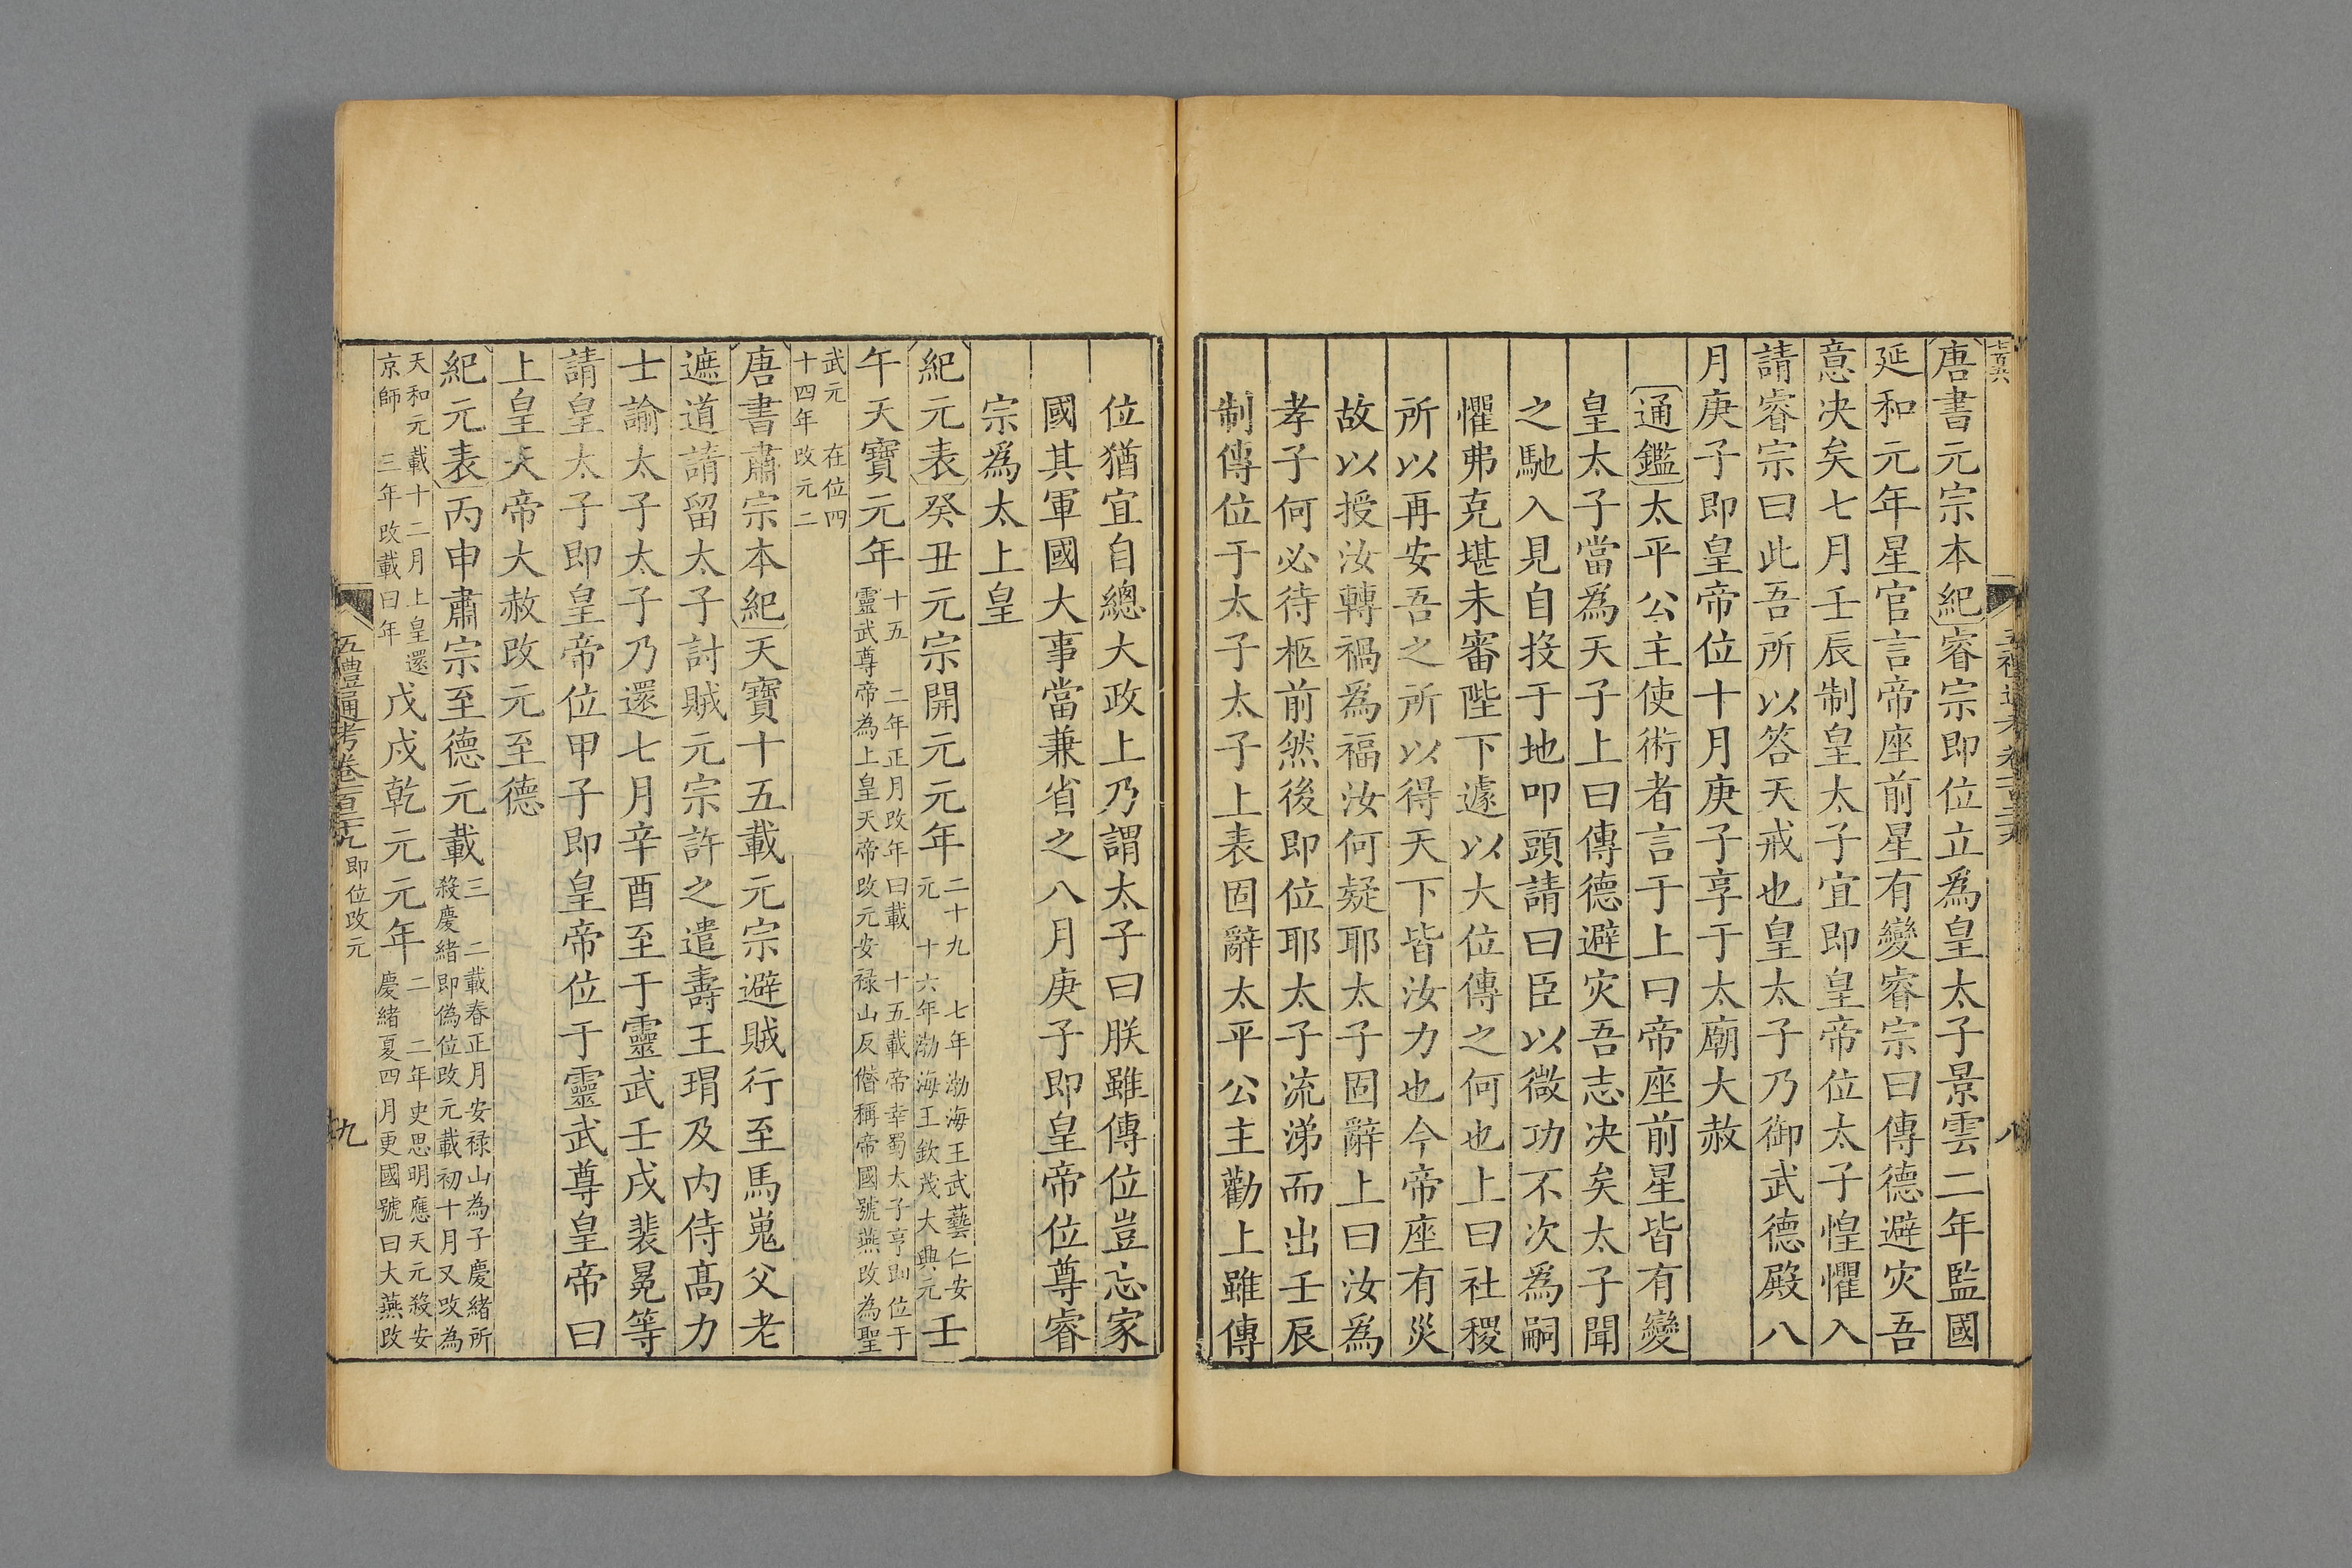 唐書元宗本紀睿宗即位立爲皇太子景雲二年監國
延和元年星官言帝座前星有變睿宗曰傳德避灾吾
意决矣七月壬辰制皇太子宜即皇帝位太子惶懼入
請睿宗曰此吾所以答天戒也皇太子乃御武德殿八
月庚子即皇帝位十月庚子享于太廟大赦
通鑑太平公主使術者言于上曰帝座前星皆有變
皇太子當爲天子上曰傳德避灾吾志决矣太子聞
之馳入見自投于地叩頭請曰臣以微功不次爲嗣
懼弗克堪未審陛下遽以大位傳之何也上曰社稷
所以再安吾之所以得天下皆汝力也今帝座有災
故以授汝轉禍爲福汝何疑耶太子固辭上曰汝爲
孝子何必待柩前然後即位耶太子流涕而出壬辰
制傳位于太子太子上表固辭太平公主勸上雖傳
位猶宜自總大政上乃謂太子曰朕雖傳位豈忘家
國其軍國大事當兼省之八月庚子即皇帝位尊睿
宗爲太上皇
紀元表癸丑元宗開元元年二十九 七年渤海王武藝仁安元 十六年渤海王欽茂大興元壬
午天寶元年十五 二年正月改年曰載 十五載帝幸蜀太子亨即位于靈武尊帝為上皇天帝改元安祿山反僭稱帝國號燕改為聖
武元 在位四十四年改元二
唐書肅宗本紀天寶十五載元宗避賊行至馬嵬父老
遮道請留太子討賊元宗許之遣壽王瑁及內侍高力
士諭太子太子乃還七月辛酉至于靈武壬戌裴冕等
請皇太子即皇帝位甲子即皇帝位于靈武尊皇帝曰
上皇天帝大赦改元至德
紀元表丙申肅宗至德元載三 二載春正月安祿山為子慶緒所殺慶緒即偽位改元載初十月又改為
天和元載十二月上皇還京師 三年改載曰年戊戌乾元元年二 二年史思明應天元殺安慶緒夏四月更國號曰大燕改
五禮通考卷一百二十九 即位改元
九